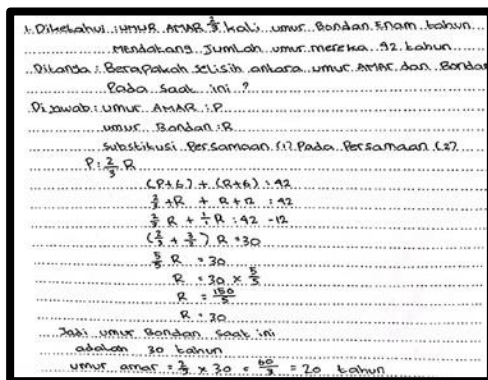 1. Diketahui : UMUR AMAR 2/3 kali umur Bondan Enam tahun
Mendatang Jumlah umur mereka 42 tahun
Ditanya : Berapakah selisih antara umur AMAR dan Bondan
Pada saat ini ?
Dijawab : umur AMAR : P
umur Bondan : R
Substitusi Persamaan (1) Pada Persamaan (2)
P : 2/3 R
(P+6) + (R+6) : 42
2/3 + R + R + 12 : 42
2/3 R + 1/1 R : 42 - 12
(2/3 + 3/3) R = 30
5/5 R = 30
R = 30 × 5/5
R = 150/5
R = 30
Jadi umur Bondan Saat ini
adalah 30 tahun
umur amar = 2/3 × 30 = 60/3 = 20 tahun